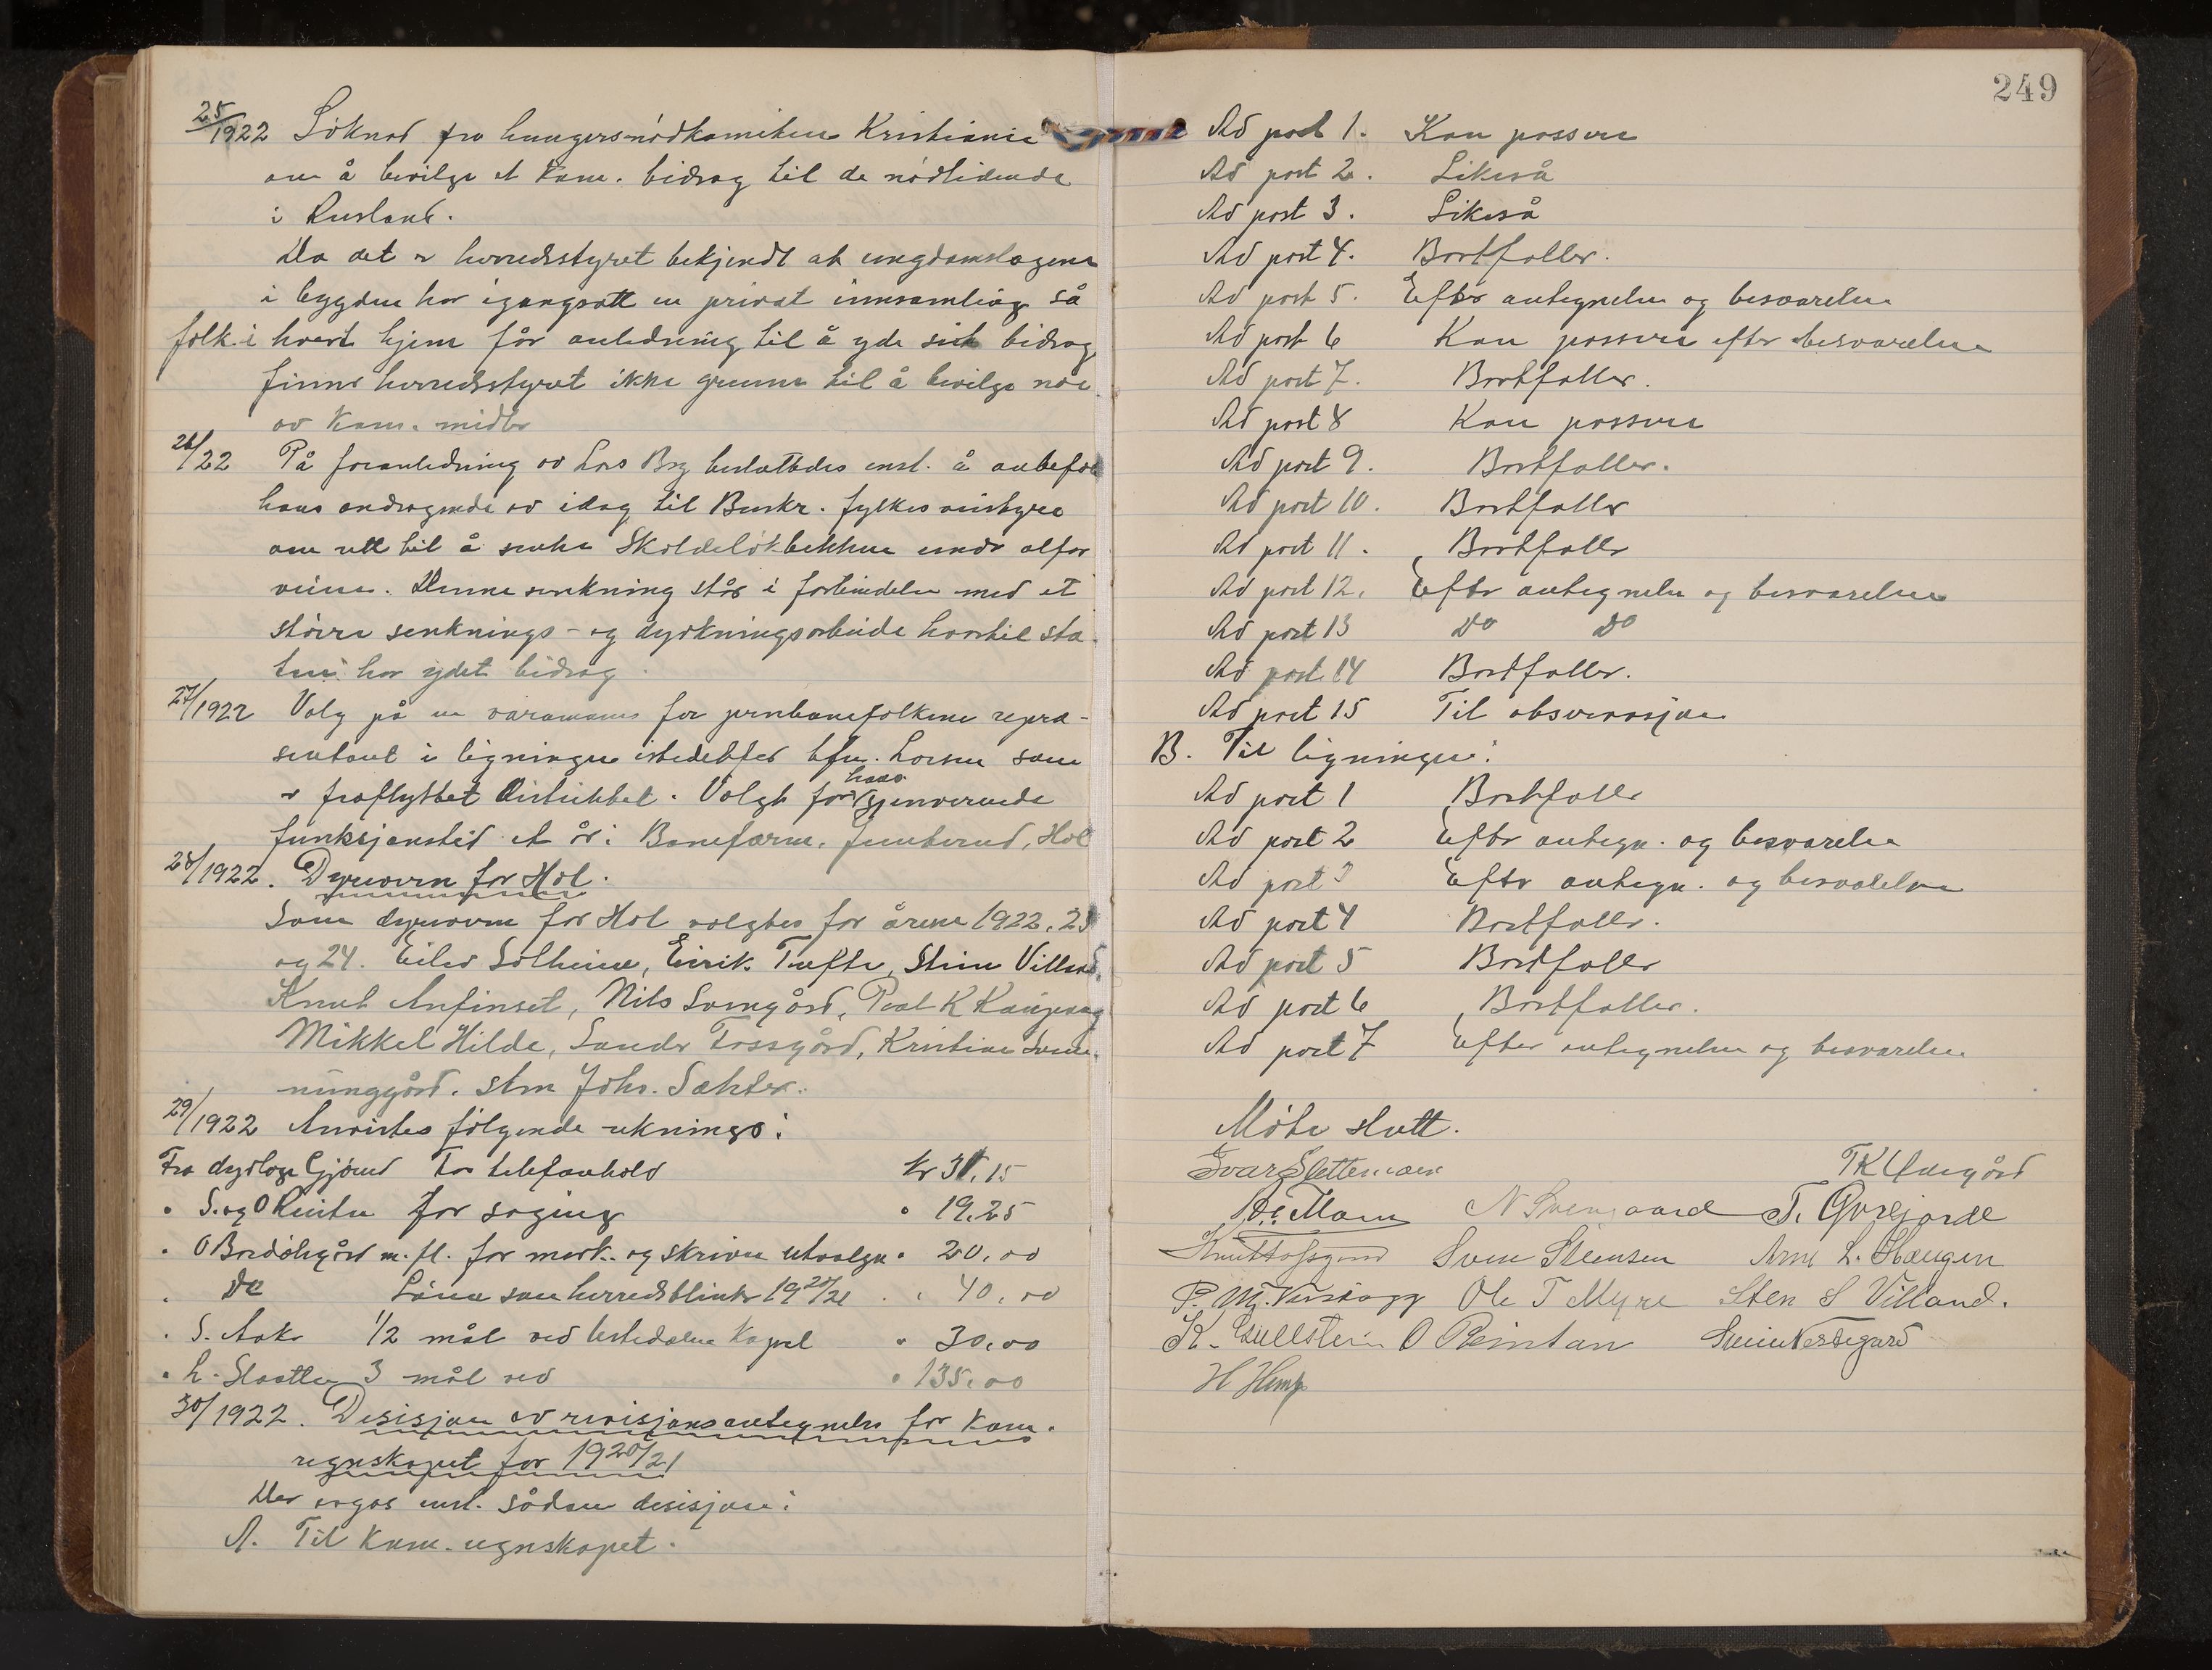 25/1922 Söknad fra hungersnödkomiteen Kristiania
om å bevilge et kom. bidrag til de nödlidende
i Rusland.
Da det er herredsstyret bekjendt at ungdomslagene
i bygden har igangsatt en privat innsamling så
folk i hvert hjem får anledning til å yde sit bidrag,
finner herredsstyret ikke grunn til å bevilge noe
av kom. midler
26/22 På foranledning av Lars Bry besluttedes enst. å anbefale
hans andragende av idag til Buskr. fylkes veistyre
om rett til å senke Skoldelökbekken under alfar
veien. Denne senkning står i forbindelse med et
större senknings- og dyrkningsarbeide hvortil sta-
ten har ydet bidrag.
27/1922 Valg på en varamann for jernbanefolkene repræ-
sentant i ligningen istedetfor bfm. Larsen som
er fraflyttet distriktet. Valgt for hans gjenværende
funksjonstid et år: Baneform. Jernberud, Hol
28/1922. Dyrevern for Hol.
Som dyrevern for Hol valgtes for årene 1922, 23
og 24. Eilev Solheim, Eirik Tufte, Stein Villand,
Knut Anfinset, Nils Svengård, Paal K
Mikkel Hilde, Sander Tossgård, Kristian Sven-
nunggård. stm Johs. Sæhter.
29/1922 Anvistes fölgende rekninger:
Fra dyrlæge Gjörud for telefonhold kr 31.15
" S. og O Reinton for saging " 19.25
" O Bordöhgård m. fl. for merk. og skriven utvalgn " 20.00
" Do Lönn som herredsblinker 1920/21 " 40.00
" S. Aaker 1/2 mål ved Ustedalen kapel " 30.00
" L. Slaatten 3 mål ved " 135.00
30/1922. Desisjon av revisjonsantegnelser for kom.
regnskapet for 1920/21
Der avgas enst. sådan desisjon:
A. Til kom. regnskapet.
249
Ad post 1. Kan passere
Ad post 2. Likeså
Ad post 3. Likeså
Ad post 4. Bortfaller.
Ad post 5. Efter antegnelsen og besvarelsen
Ad post 6 Kan passere efter besvarelsen
Ad post 7. Bortfaller.
Ad post 8 Kan passere
Ad post 9. Bortfaller.
Ad post 10. Bortfaller
Ad post 11. Bortfaller
Ad post 12. Efter antegnelsen og besvarelsen
Ad post 13 Do Do
Ad post 14 Bortfaller.
Ad post 15 Til observasjon
B. Til ligningen:
Ad post 1 Bortfaller
Ad post 2 Efter antegn. og besvarelsen
Ad post 3 Efter antegn. og besvarelsen
Ad post 4 Bortfaller.
Ad post 5 Bortfaller
Ad post 6 Bortfaller.
Ad post 7 Efter antegnelsen og besvarelsen
Möte slutt.
Ivar Slettemoen TK
N Svengaard T. Øvrejorde
Knut Tofsgard Sven Steinsen Arne L. Haugen
P. M. Ole T Myre Sten S Villand.
K. Gullstein O Reintan Svein Nerdegard
H Hemp